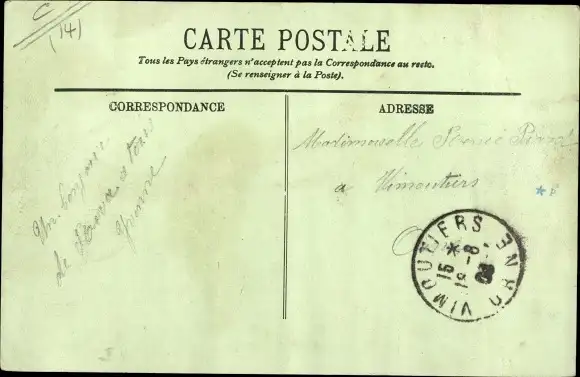 C
(14)
CARTE POSTALE
Tous les Pays étrangers n'acceptent pas la Correspondance au recto.
(Se renseigner à la Poste).
CORRESPONDANCE
ADRESSE
Un bonjour
de à tous
Yvonne
Mademoiselle
a Vimoutiers
VIMOUTIERS ORNE
15
19 -8